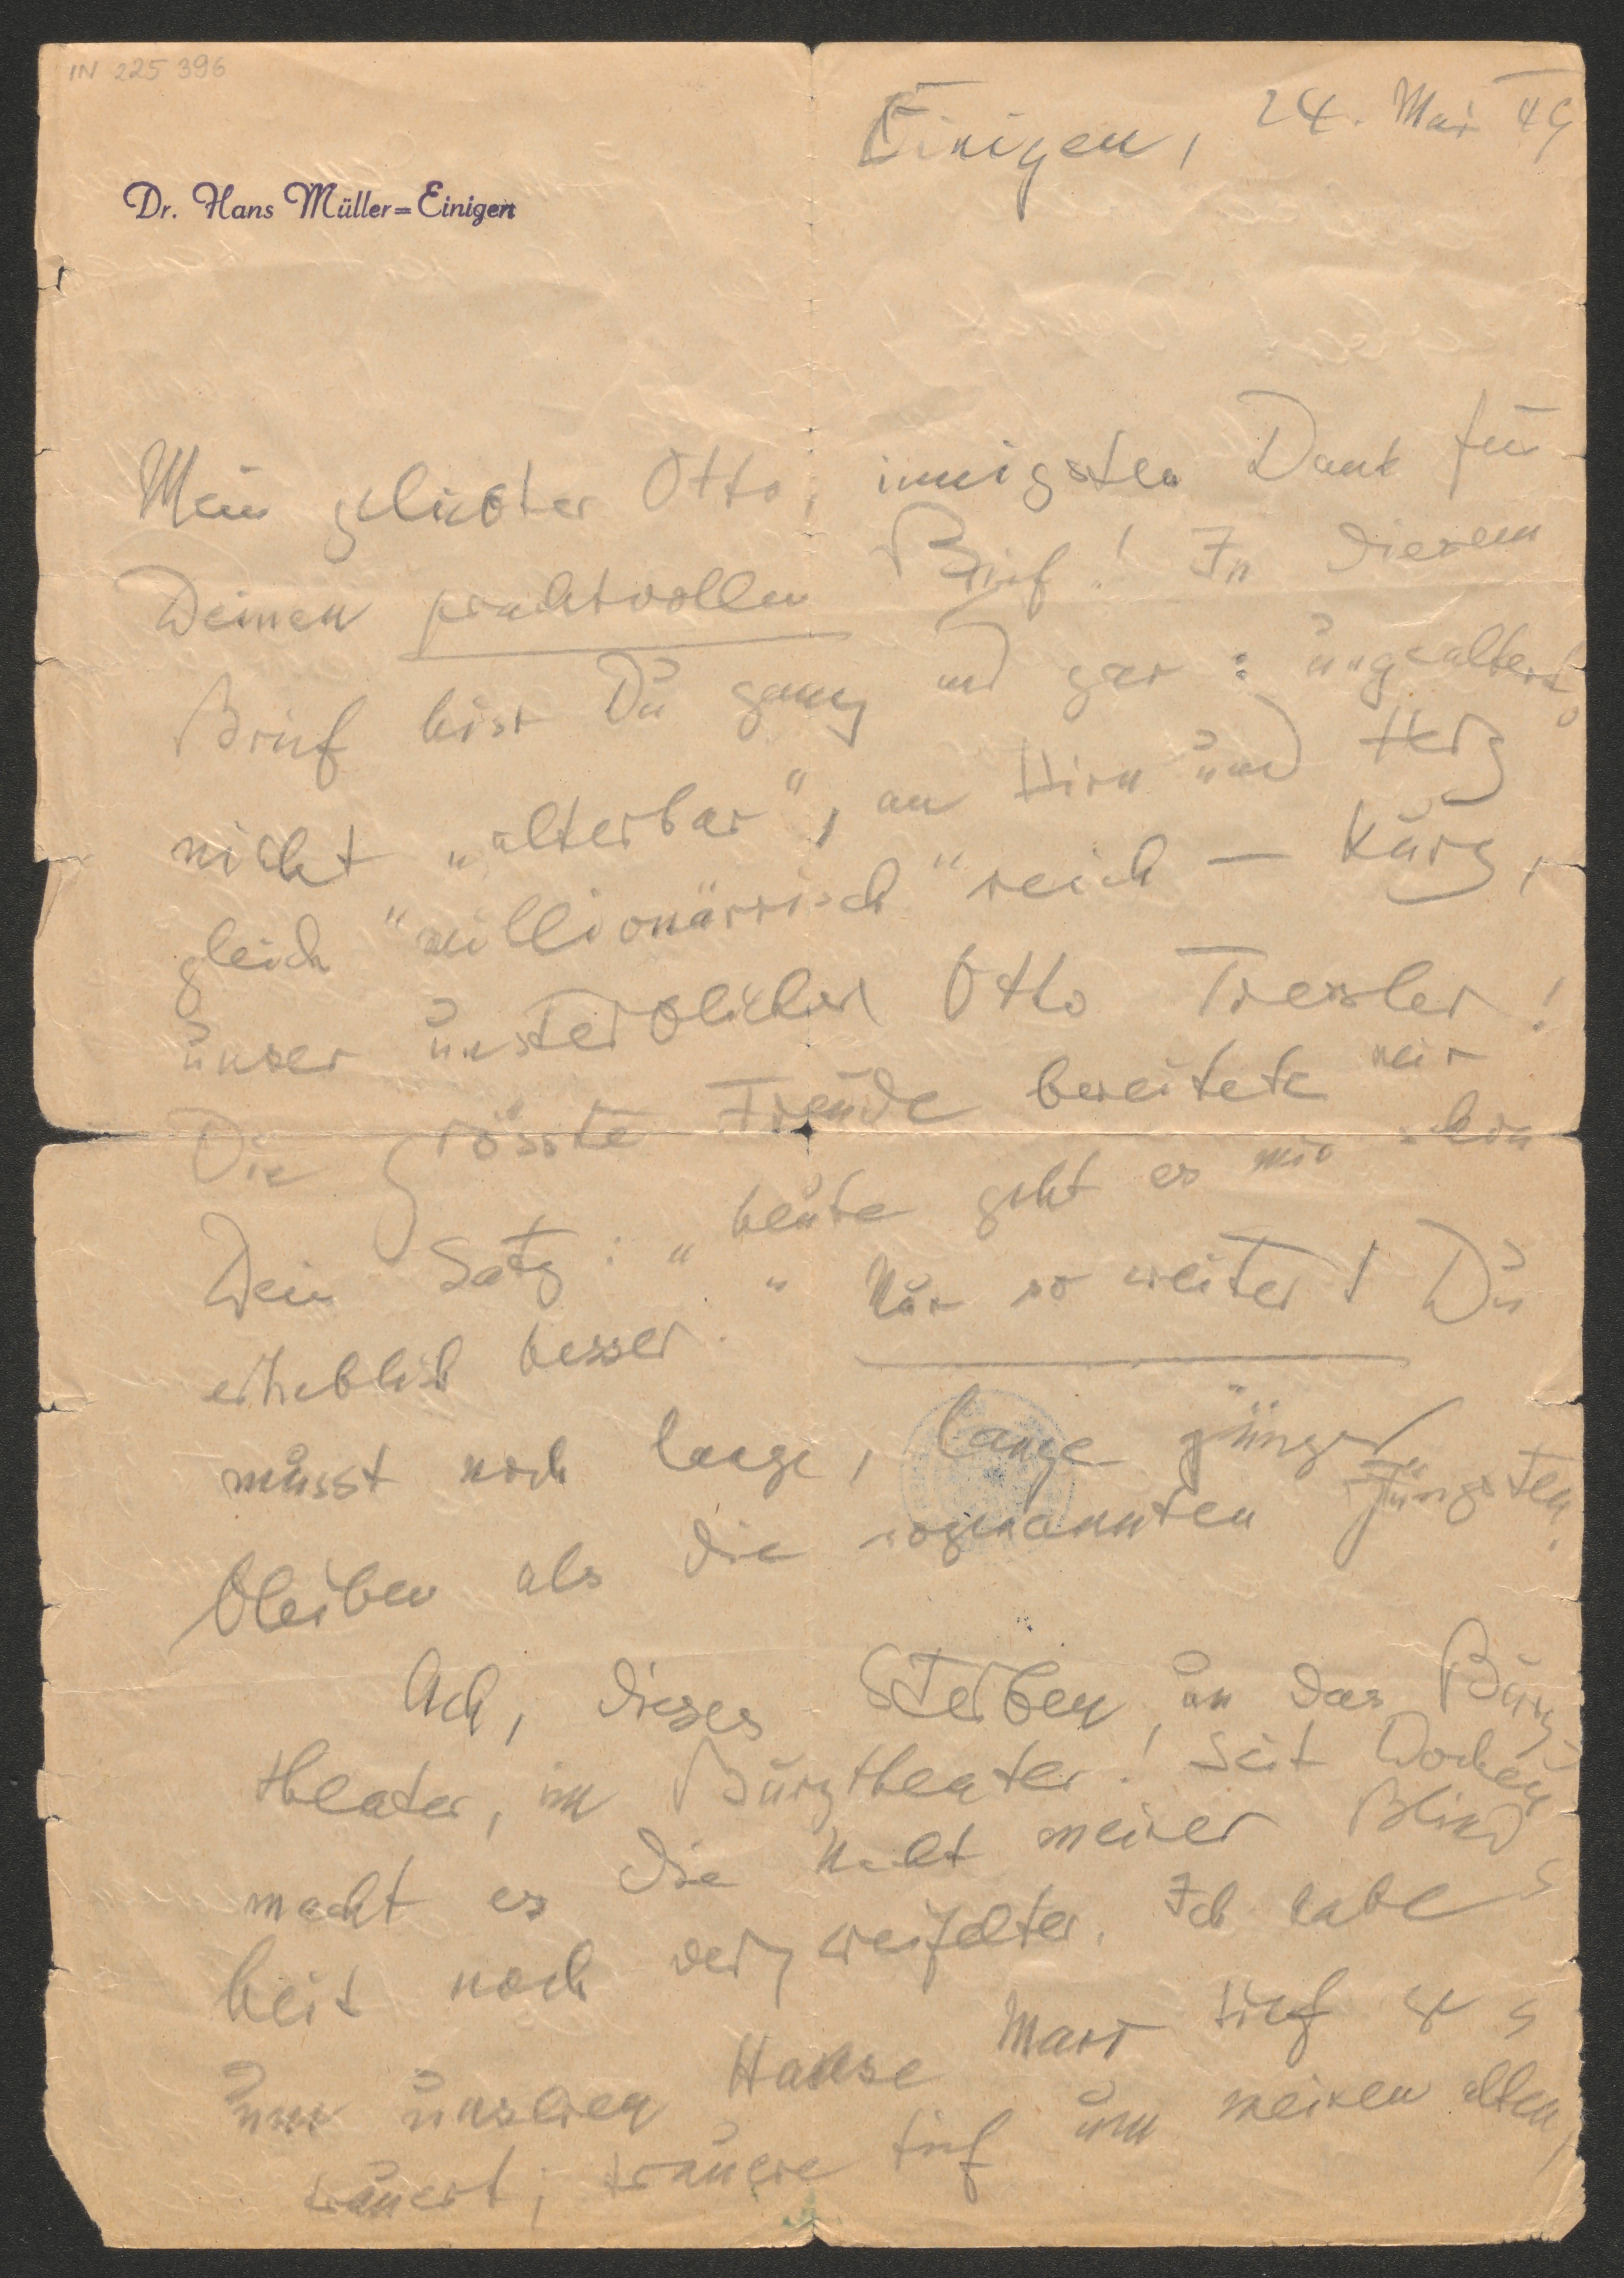 IN 225 396
Einigen, 24. Mai 49
Dr. Hans Müller=Einigen
Mein geliebter Otto, innigsten Dank für
Deinen prachtvollen Brief! In diesem
Brief bist Du ganz und gar: ungealtert,
nicht „alterbar", an Hirn und Herz
gleich "millionärrisch" reich — kurz,
unser unsterblicher Otto Tressler!
Die grösste Freude bereitete mir
Dein Satz: „heute geht es mir schon
erheblich besser." Nur so weiter! Du
musst noch lange, lange jünger
bleiben als die sogenannten Jüngsten.
Ach, dieses Sterben um das Burg-
theater, im Burgtheater! Seit Wochen
macht es die Nacht meiner Blind-
heit noch verzweifelter. Ich habe
um unseren Hanse Marr tief ge-
trauert; traure tief um meinen alten,